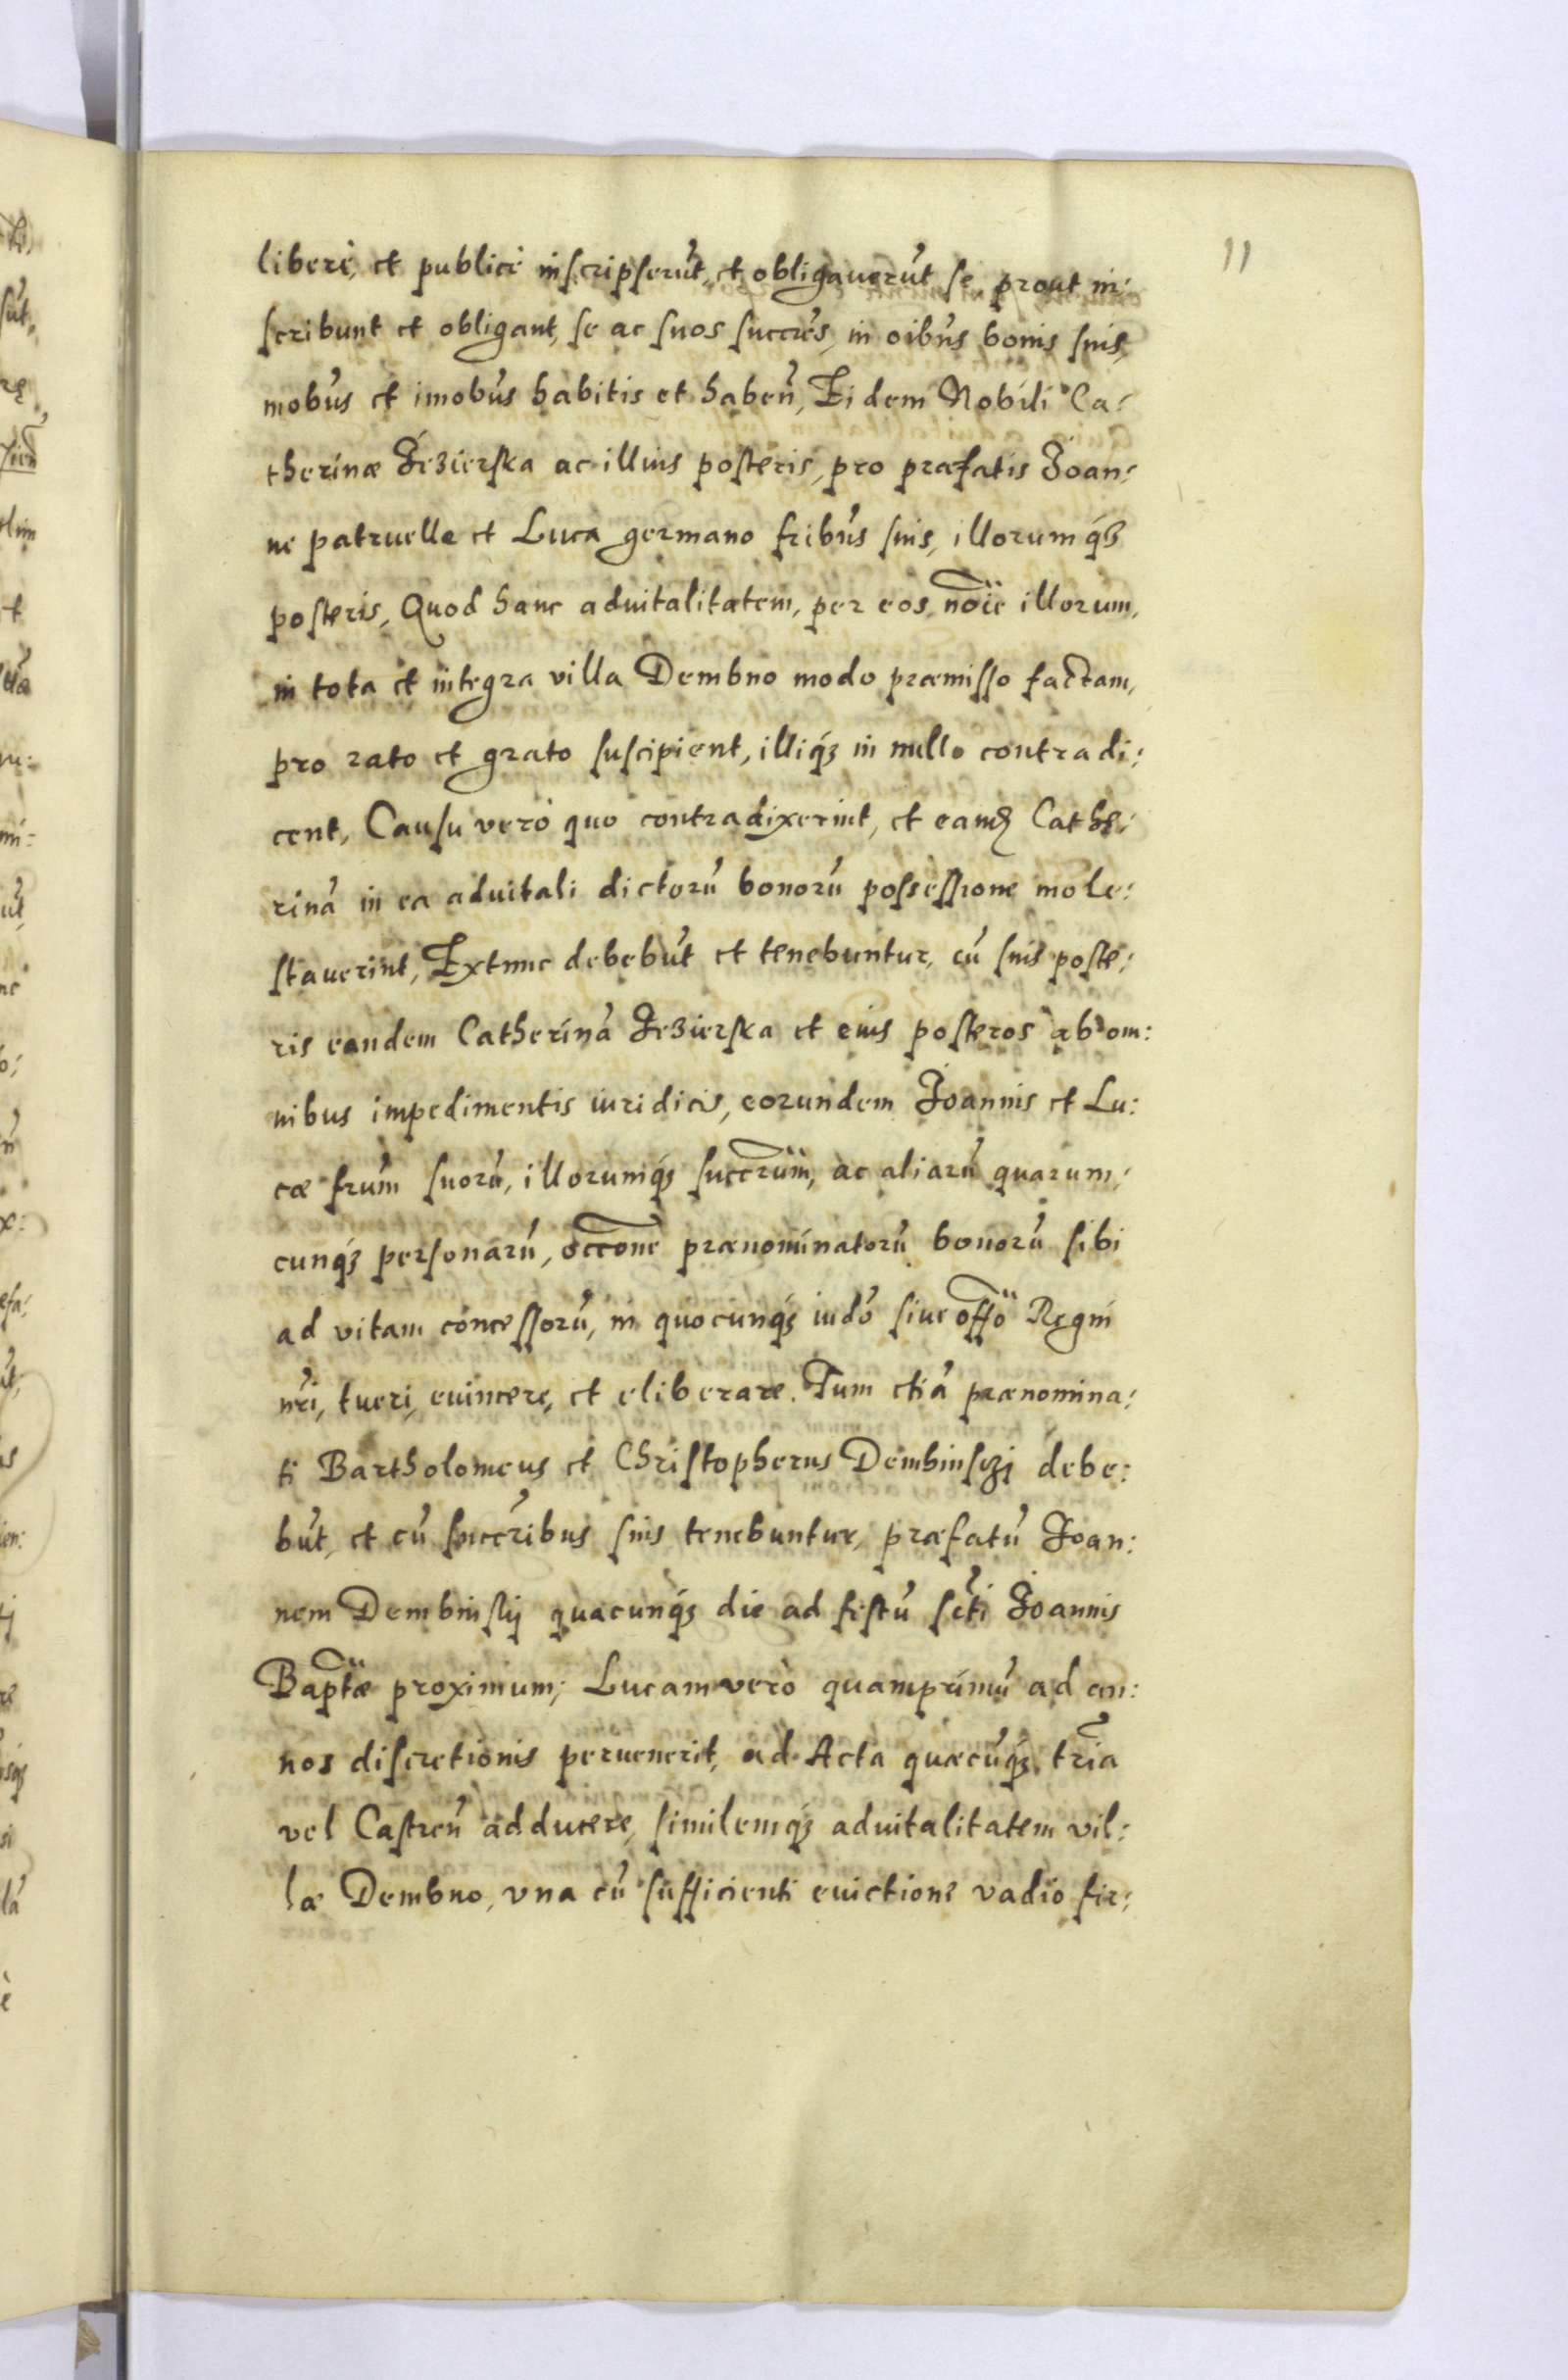 11
liberè, et publicè inscripserūt, et obligauerūt se, prout in:
scribunt et obligant, se ac suos succr̄es, in oībus bonis suis,
mobūs et imobūs habitis et haben̄, Eidem Nobili Ca:
therinæ Jezierska ac illius posteris, pro præfatis Joan:
ne patruelle et Luca germano fribūs suis, illorumq́ꝫ
posteris, Quod hanc aduitalitatem, per eos, noīe illorum,
in tota et integra villa Dembno modo præmisso factam,
pro rato et grato suscipient, illiq́ꝫ in nullo contradi:
cent, Causu verò quo contradixerint, et eamꝫ Cathe:
rinā in ea aduitali dictorū bonorū possessione mole:
stauerint, Extunc debebūt et tenebuntur, cū suis poste:
ris eandem Catherinā Jezierska et eius posteros ab om:
nibus impedimentis iuridicis, eorundem Joannis et Lu:
cæ frūm suorū, illorumq́ꝫ succr̄um, ac aliarū quarum:
cunq́ꝫ personarū, occōne prænominatorū bonorū sibi
ad vitam concessorū, in quocunq́ꝫ iudō siue offō Regni
nr̄i, tueri, euincere, et eliberare. Tum etiā prænomina:
ti Bartholomeus et Christopherus Dembinsczÿ debe:
būt, et cū succr̄ibus suis tenebuntur, præfatū Joan:
nem Dembinsky quacunq́ꝫ die ad festū scti Joannis
Baptæ proximum; Lucam verò quamprimū ad an:
nos discretionis peruenerit, ad Acta quæcūq́ꝫ tr̄ia
vel Castren̄ adducere, similemq́ꝫ aduitalitatem vil:
læ Dembno, vna cū sufficienti euictione vadio fir: